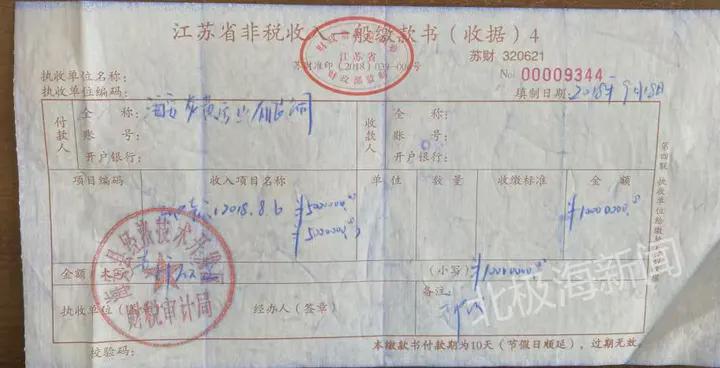 江苏省非税收入一般缴款书（收据）4
江苏省
苏财准印（2018）039-00 号
财政部监制
苏财 320621
No 00009344
执收单位名称：
执收单位编码：
填制日期：2018年9月18日
付款人
全 称：
账 号：
开户银行：
收款人
全 称：
账 号：
开户银行：
项目编码 收入项目名称 单位 数量 收缴标准 金 额
2018.8.6 ¥5000000.00 ¥10000000.00
¥5000000.00
金额（大写）
（小写）¥10000000.00
执收单位（ 经办人（签章） 备注：
技术开发
财税审计局
校验码： 本缴款书付款期为10天（节假日顺延），过期无效
第四联 执收单位给缴款
北极海新闻